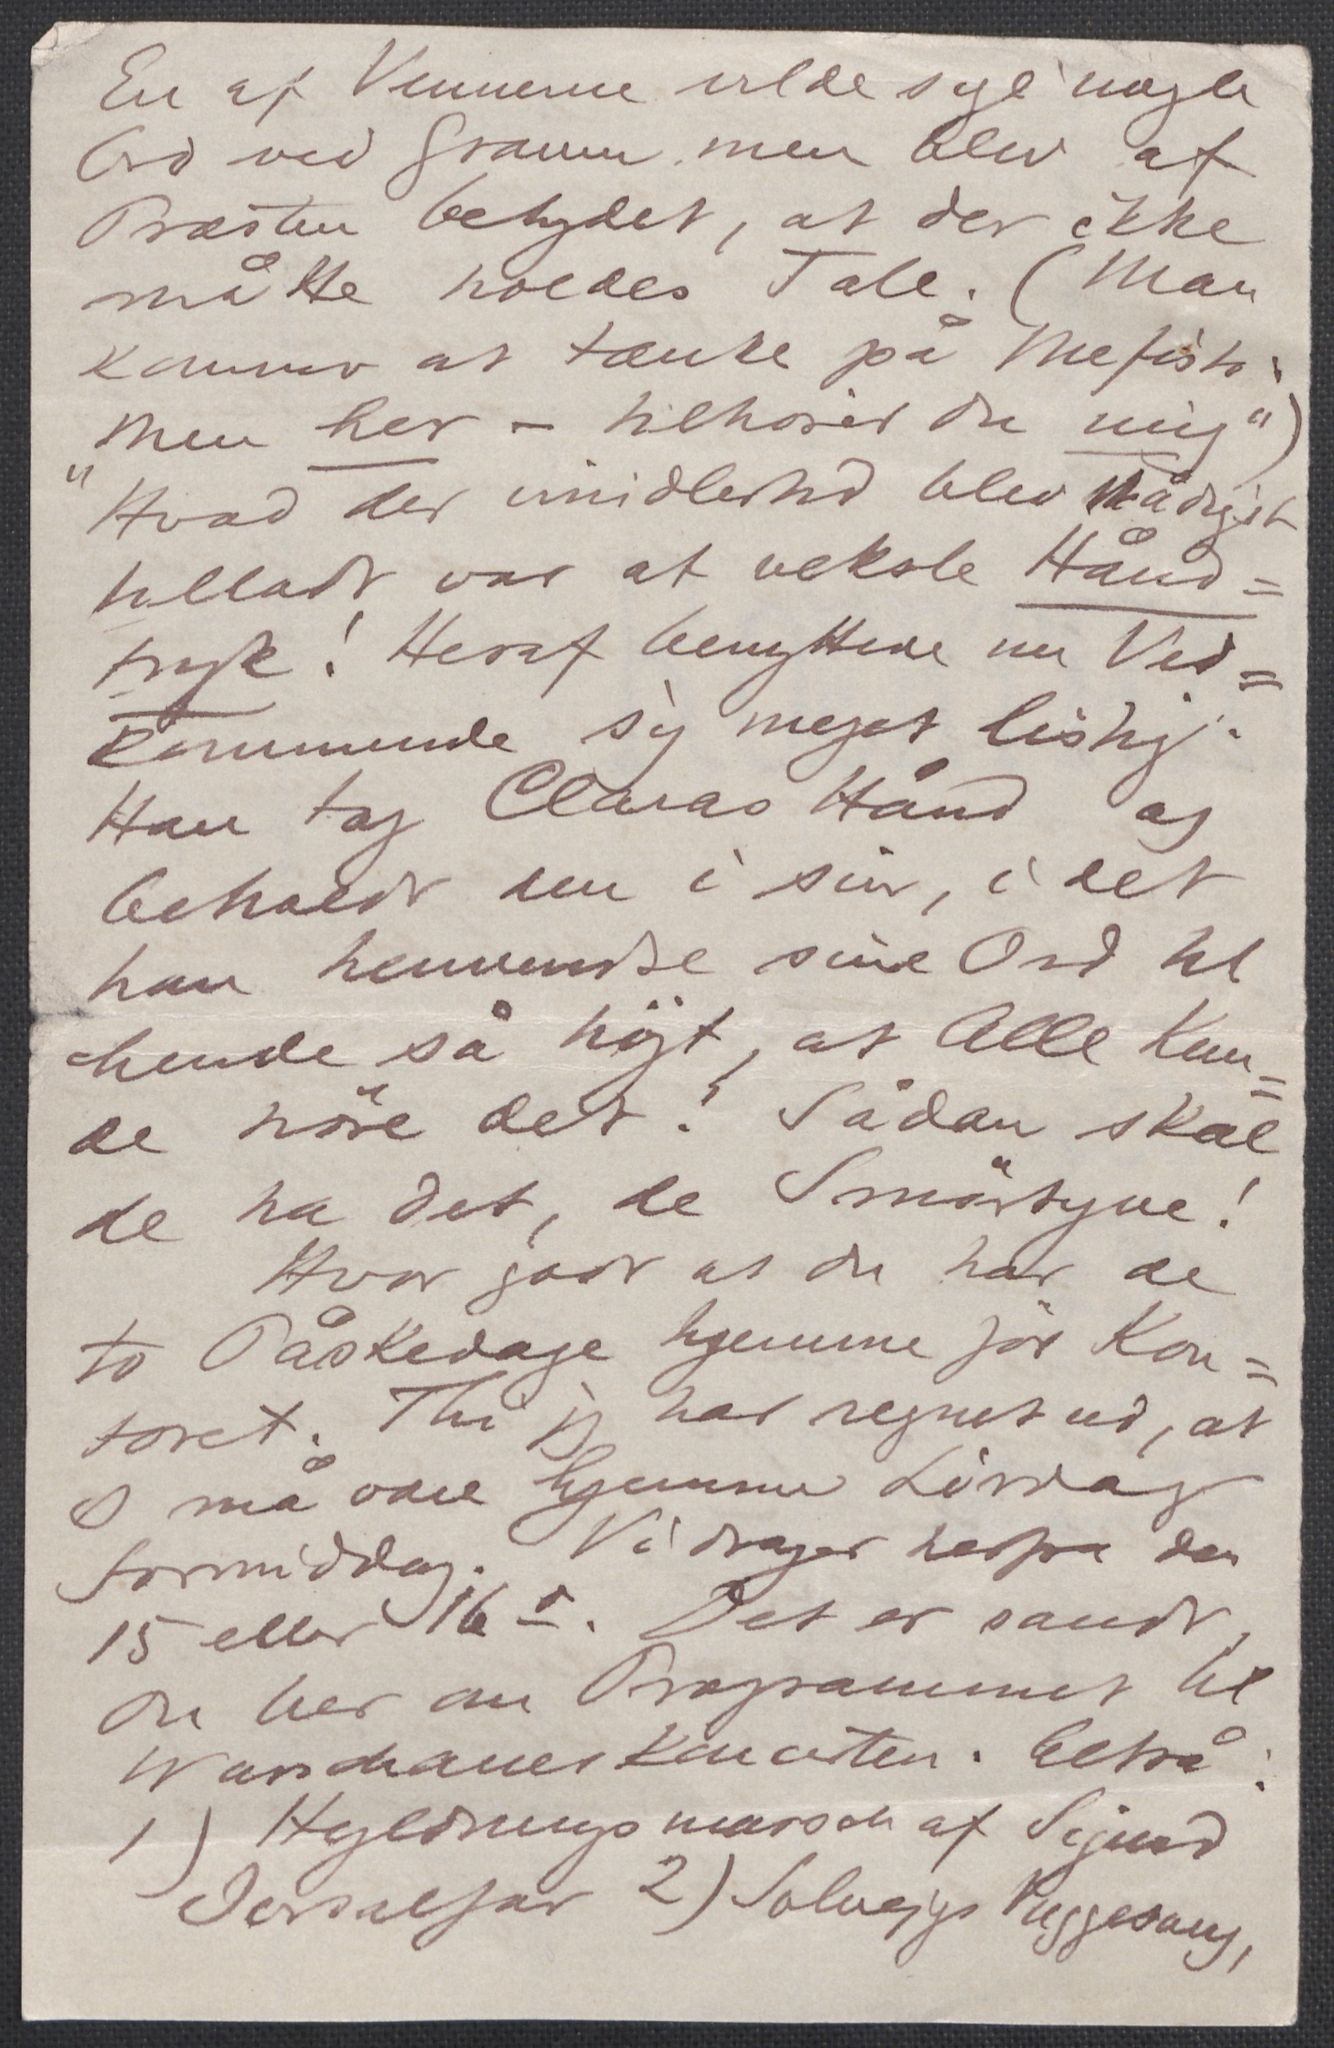 En af Vennerne vilde sige nogle
Ord ved Graven men blev af
Præsten betydet, at der ikke
måtte holdes Tale. (Man
kommer at tænke på Mefisto:
"Men her – tilhører du mig")
Hvad der imidlertid blev nådigst
tilladt var at veksle Hånd=
tryk! Heraf benyttede nu Ved=
kommende sig meget listig.
Han tog Claras Hånd og
beholdt den i sin, i det
han henvendte sine Ord til
hende så højt, at Alle kun=
de höre det! Sådan skal
de ha det, de Smörtyve!
Hvor godt at du har de
to Påskedage hjemme för Kon=
toret. Thi jeg har regnet ud, at
I må være hjemme Lördag
Formiddag. Vi drager herfra den
15 eller 16de. Det er sandt,
du ber om Programmet til
Warschauerkoncerten. Altså:
1) Hyldningsmarsch af Sigurd
Jorsalfar 2) Solvejgs Vuggesang,